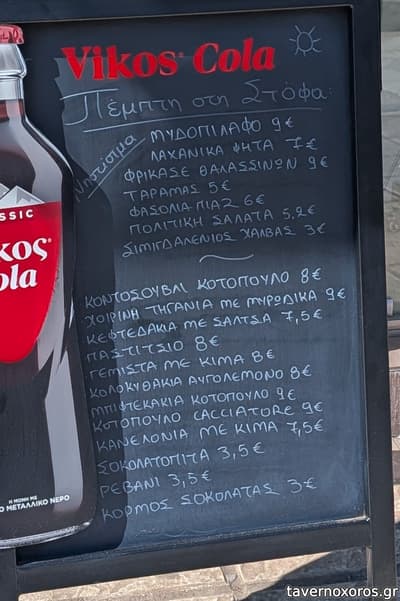 Vikos® Cola
Πέμπτη στη Στόφα:
Νηστίσιμα
ΜΥΔΟΠΙΛΑΦΟ 9€
ΛΑΧΑΝΙΚΑ ΨΗΤΑ 7€
ΦΡΙΚΑΣΕ ΘΑΛΑΣΣΙΝΩΝ 9€
ΤΑΡΑΜΑΣ 5€
ΦΑΣΟΛΙΑ ΠΙΑΖ 6€
ΠΟΛΙΤΙΚΗ ΣΑΛΑΤΑ 5,2€
ΣΙΜΙΓΔΑΛΕΝΙΟΣ ΧΑΛΒΑΣ 3€
ΚΟΝΤΟΣΟΥΒΛΙ ΚΟΤΟΠΟΥΛΟ 8€
ΧΟΙΡΙΝΗ ΤΗΓΑΝΙΑ ΜΕ ΜΥΡΩΔΙΚΑ 9€
ΚΕΦΤΕΔΑΚΙΑ ΜΕ ΣΑΛΤΣΑ 7,5€
ΠΑΣΤΙΤΣΙΟ 8€
ΓΕΜΙΣΤΑ ΜΕ ΚΙΜΑ 8€
ΚΟΛΟΚΥΘΑΚΙΑ ΑΥΓΟΛΕΜΟΝΟ 8€
ΜΠΙΦΤΕΚΑΚΙΑ ΚΟΤΟΠΟΥΛΟ 9€
ΚΟΤΟΠΟΥΛΟ CACCIATORE 9€
ΚΑΝΕΛΟΝΙΑ ΜΕ ΚΙΜΑ 7,5€
ΣΟΚΟΛΑΤΟΠΙΤΑ 3,5€
ΡΕΒΑΝΙ 3,5€
ΚΟΡΜΟΣ ΣΟΚΟΛΑΤΑΣ 3€
SSIC
kos®
ola
Η ΜΟΝΗ ΜΕ
Ο ΜΕΤΑΛΛΙΚΟ ΝΕΡΟ
tavernoxoros.gr